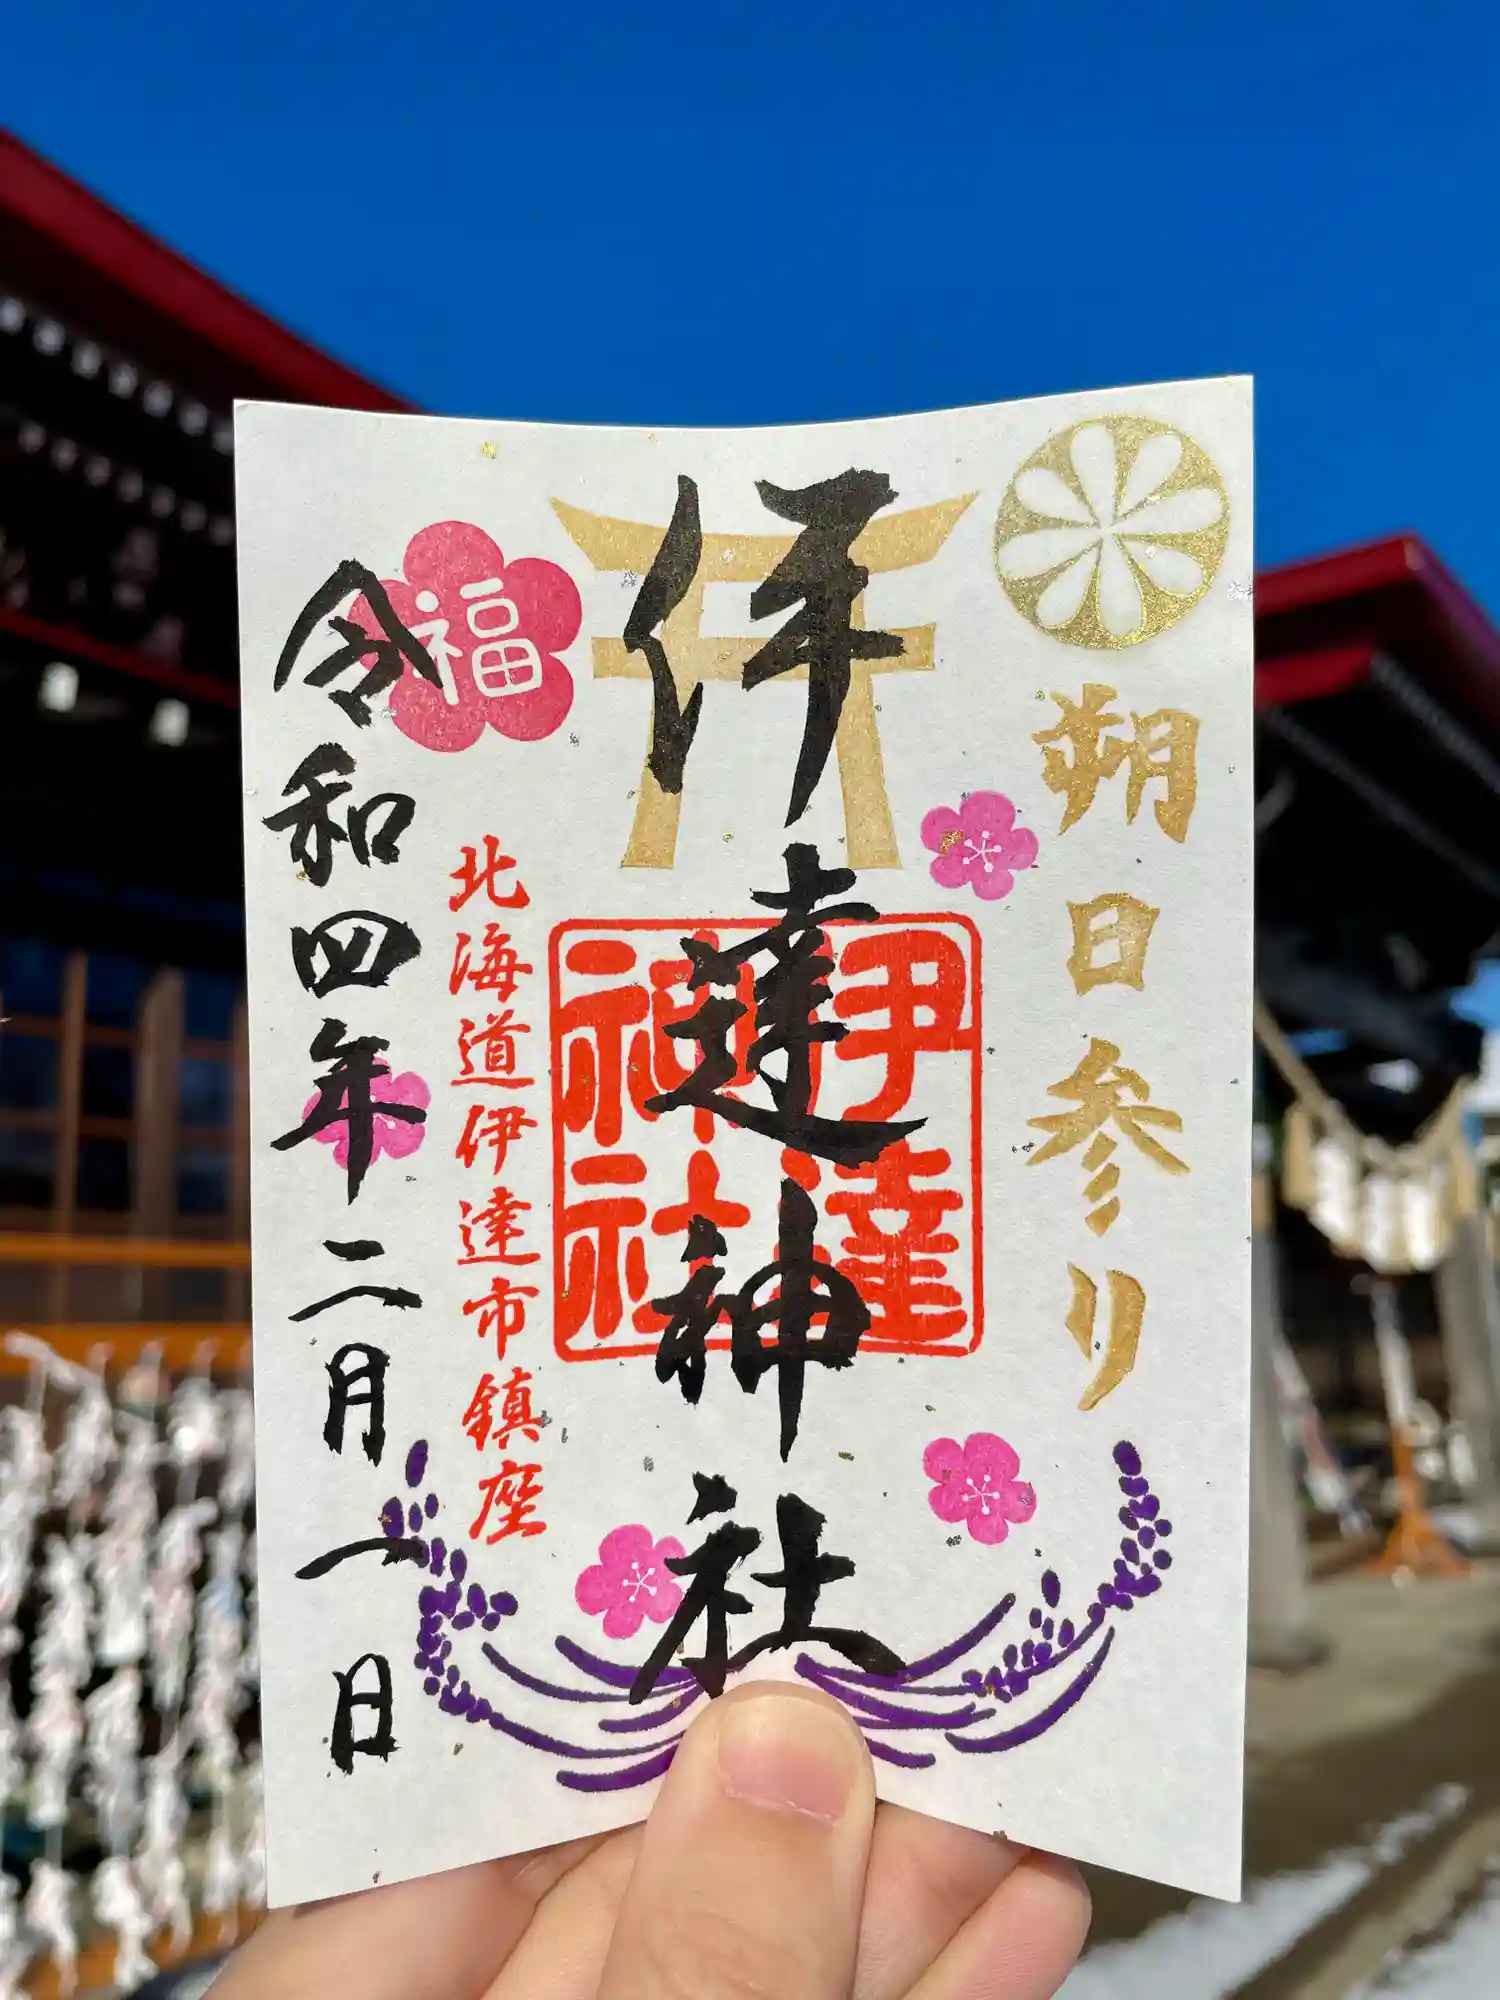 朔日参り
伊達神社
伊達神社
北海道伊達市鎮座
福
令和四年二月一日